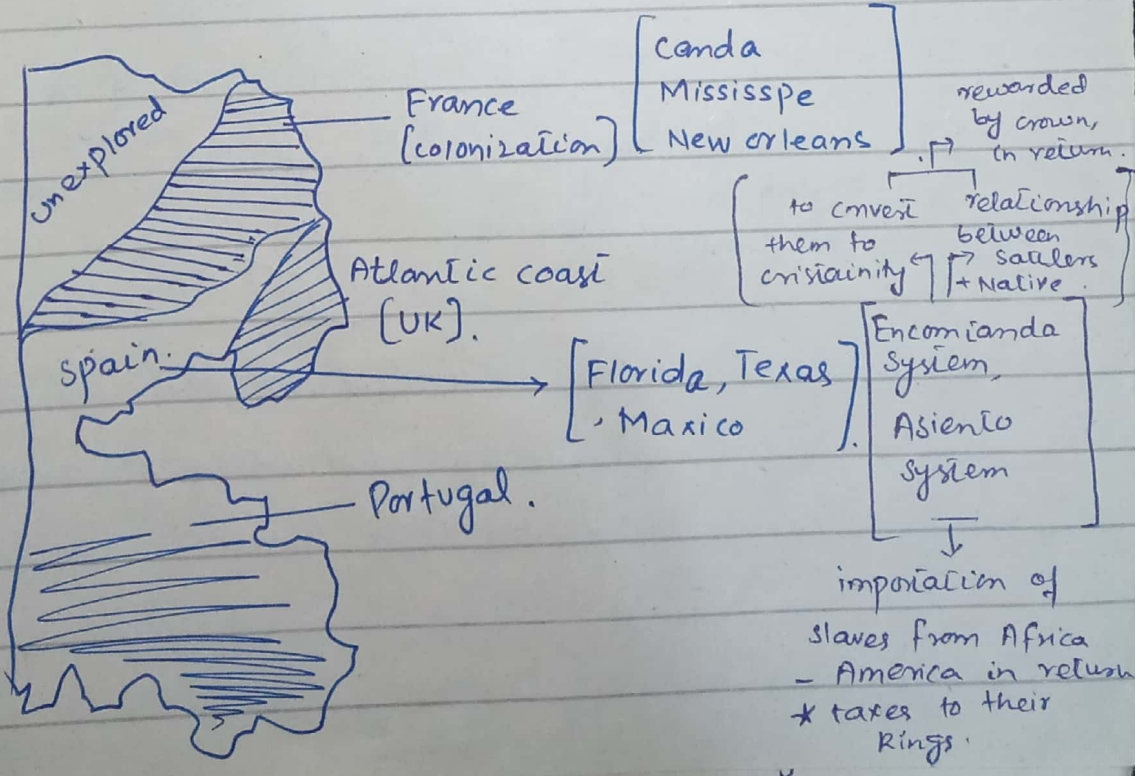 unexplored
France
[colonization]
Canda
Mississpe
New orleans
rewarded
by crown,
in return.
to convert
them to
cristainity
relationship
between
sattlers
+ Native.
Atlantic coast
[UK].
Spain.
[Florida, Texas
, Maxico].
Encomianda
System,
Asiento
System
Portugal.
importation of
slaves from Africa
- America in return
* taxes to their
Kings.